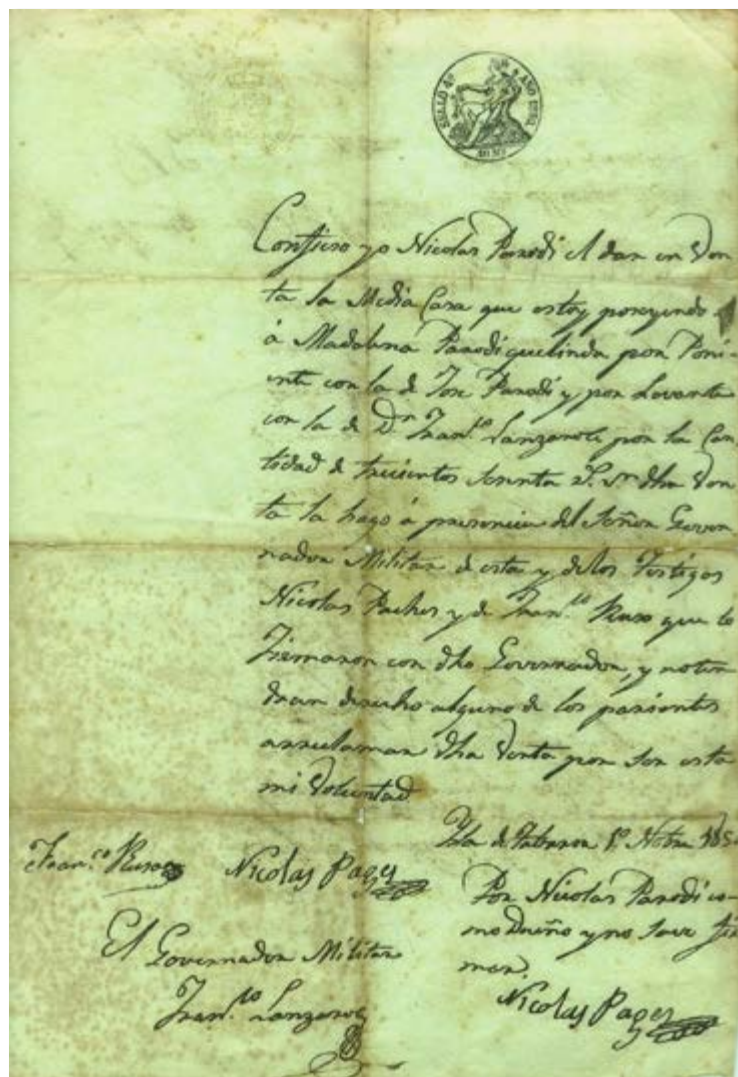 SELLO 4º AÑO 1851
40 MS
Confieso yo Nicolas Parodi el dar en Ven
ta la Media Casa que estoy poseyendo
á Madalena Parodi que linda por Poni-
ente con la de Jose Parodi y por Levante
con la de Dn Franco Lanzarote por la Can
tidad de trecientos sesenta rs. vn dha Ven
ta la hago á presencia del Señor Gover
nador Militar de esta y delos Testigos
Nicolas Pacher y de Franco Ruso que lo
Firmaron con dho Governador, y noten
dran derecho alguno de los parientes
arreclamar dha Venta por ser esta
mi Voluntad
Isla de Tabarca 1º Nobre 185
Franco Ruso
Nicolas Pages
Por Nicolas Parodi co-
mo Dueño y no save fir
mar.
Nicolas Pages
El Governador Militar
Franco Lanzarote